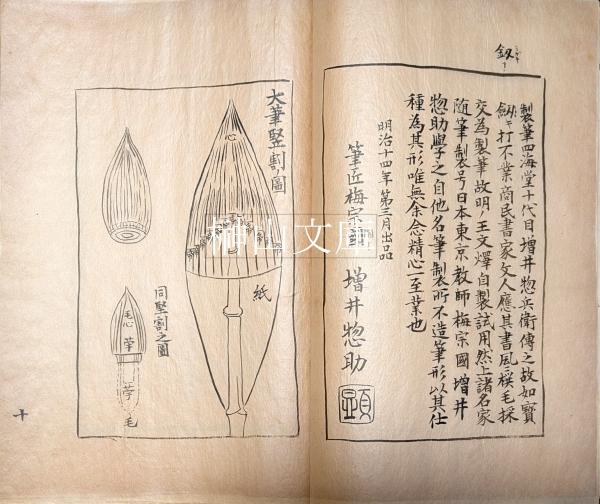 釼
製筆四海堂十代目増井惣兵衛傳之故如寳
釼ニ打不業商民書家文人應其書風三模毛採
交為製筆故明ノ王文燡自製試用然上諸名家
随筆製号日本東京教師梅宗國増井
惣助學之自他名筆制所不造筆形以其仕
種為其形唯無余念精心一至業也
明治十四年第三月出品
筆匠梅宗 増井惣助
顕
大筆竪割ノ圖
心
紙
同竪割之圖
毛心
筆
毛
十
榊山文庫